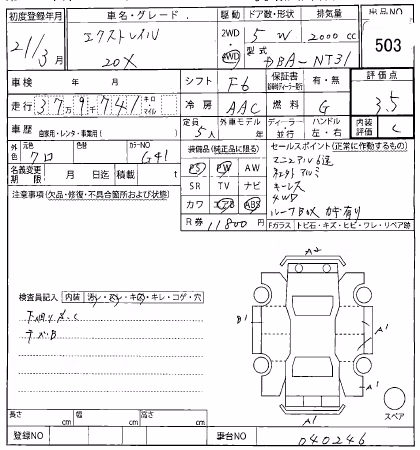 初度登録年月 車名・グレード 駆動 ドア数・形状 排気量 出品NO
21/3月 エクストレイル 2WD AWD 5 W 2000 cc 503
20X 型式 DBA-NT31
車検 年 月 シフト F6 保証書 有・無 評価点
走行 37万9千741 キロ マイル 冷房 AAC 燃料 G 3.5
車歴 自家用・レンタ・事業用( ) 定員 5人 外車モデル 年 ディーラー 並行 ハンドル 左・右 内装評価 C
外色 元色 クロ 色替 カラーNO G41 装備品(純正品に限る) セールスポイント(正常に作動するもの)
名義変更期限 月 日迄 積載 t PS PW AW マニュアル6速
注意事項(欠品・修復・不具合箇所および状態) SR TV ナビ
カワ エアB ABS キーレス
4WD
R券 11800円 ルーフBOX カギ有り
Fガラス トビ石・キズ・ヒビ・ワレ・リペア跡
A2
検査員記入 内装 汚レ・スレ・キズ・キレ・コゲ・穴
下回りサビC B1 A1
A1
A1 スペア
長さ cm 幅 cm 高さ cm
登録NO 車台NO 040246